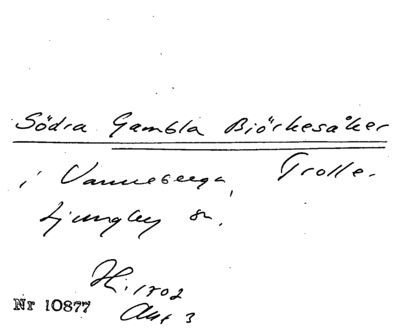 Södra Gambla Biörkesåker
i Vanneberga, Trolle-
Ljungby sn.
H:1702
Nr 10877 Akt 3